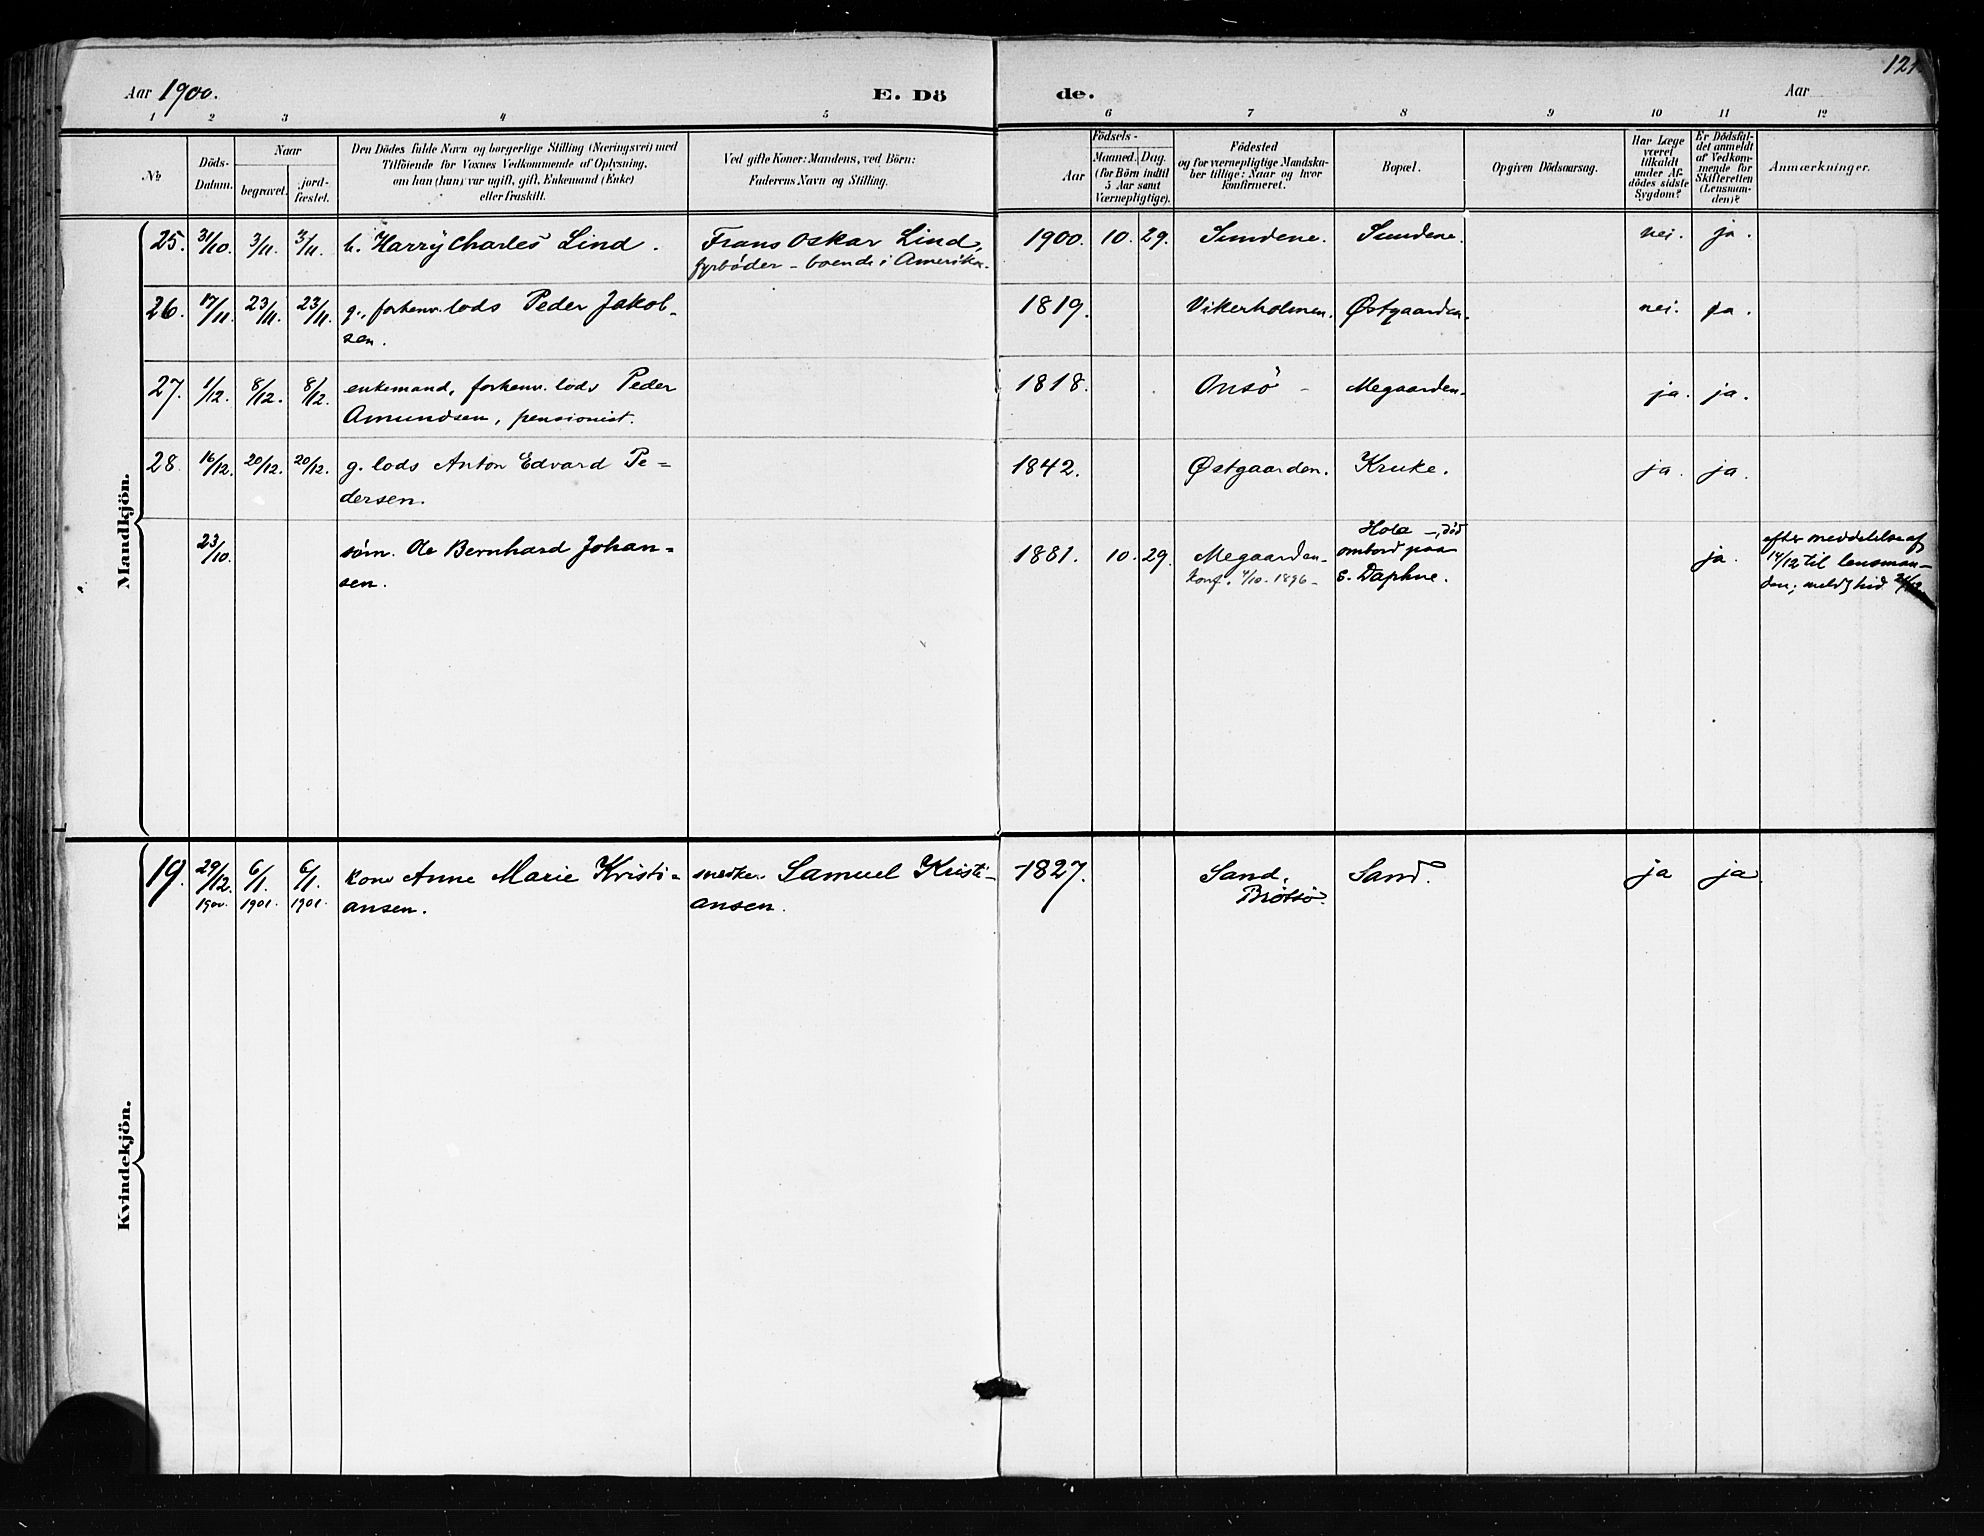 121.
Aar 1900.
E. Dö
de.
Aar
1 2 3 4 5 6 7 8 9 10 11 12
№
Döds-
Datum.
Naar
begravet.
jord-
fæstet.
Den Dödes fulde Navn og borgerlige Stilling (Næringsvei) med
Tilföiende for Voxnes Vedkommende af Oplysning,
om han (hun) var ugift, gift, Enkemand (Enke)
eller fraskilt.
Ved gifte Koner: Mandens, ved Börn:
Faderens Navn og Stilling.
Födsels-
Aar
Maaned.
Dag.
(for Börn indtil
5 Aar samt
Værnepligtige).
Födested
og for værnepligtige Mandska-
ber tillige: Naar og hvor
konfirmeret.
Bopæl.
Opgiven Dödsaarsag.
Har Læge
været
tilkaldt
under Af-
dödes sidste
Sygdom?
Er Dödsfal-
det anmeldt
af Vedkom-
mende for
Skifteretten
(Lensman-
den)?
Anmærkninger.
Mandkjön.
25. 31/10. 3/11. 3/11. b. Harry Charles Lind. Frans Oskar Lind, 1900. 10. 29. Sundene. Sundene. nei. ja.
fyrbøder - boende i Amerika.
26. 17/11. 23/11. 23/11. g., forhenv. lods Peder Jakob- 1819. Vikerholmen. Østgaarden. nei. ja.
sen.
27. 1/12. 8/12. 8/12. enkemand, forhenv. lods Peder 1818. Onsö - Megaarden. ja. ja.
Amundsen, pensionist.
28. 16/12. 20/12. 20/12. g. lods Anton Edvard Pe- 1842. Østgaarden. Kruke. ja. ja.
dersen.
23/10. søm. Ole Bernhard Johan- 1881. 10. 29. Megaarden. Hola -, død ja. efter meddelelse af
sen. konf. 4/10. 1896 - ombord paa 14/12 til lensman-
S. Daphne. den; meldt hid
Kvindekjön.
19. 29/12. 6/1. 6/1. kone Anne Marie Kristi- snedker Samuel Kristi- 1827. Sand, Sand. ja ja.
1900. 1901. 1901. ansen. ansen. Brötsö.